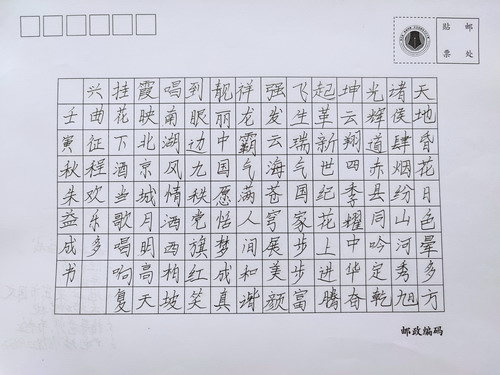 贴票
邮处
天地昏花月色晕多方
诸侯肆烟纷山河秀旭
光辉道赤县同吟定乾
坤云翔四季耀中华奋
起革新世纪花上进腾
飞生瑞气国家步步富
强发云海苍穹展美颜
祥龙霸气满人间和谐
靓丽中国愿恬梦成真
到眼边九秩党旗红笑
唱南湖风情洒西柏坡
霞映北京城月明高天
挂花下酒当歌唱响复
兴曲征程欢乐多
壬寅秋朱益成书
邮政编码